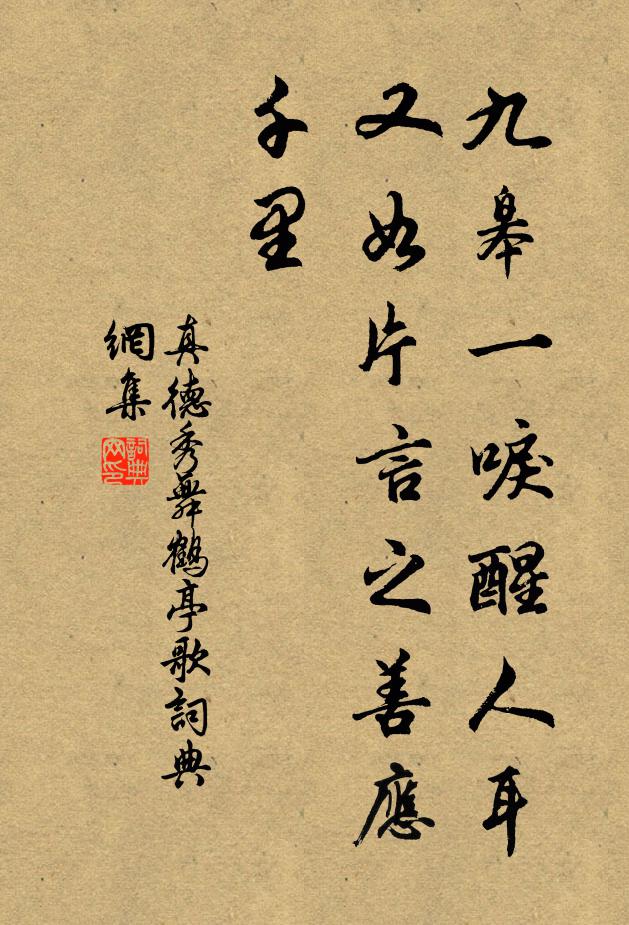 九皋一唳醒人耳
又如片言之善應
千里
真德秀舞鶴亭歌詞典
網集
詞典
网印